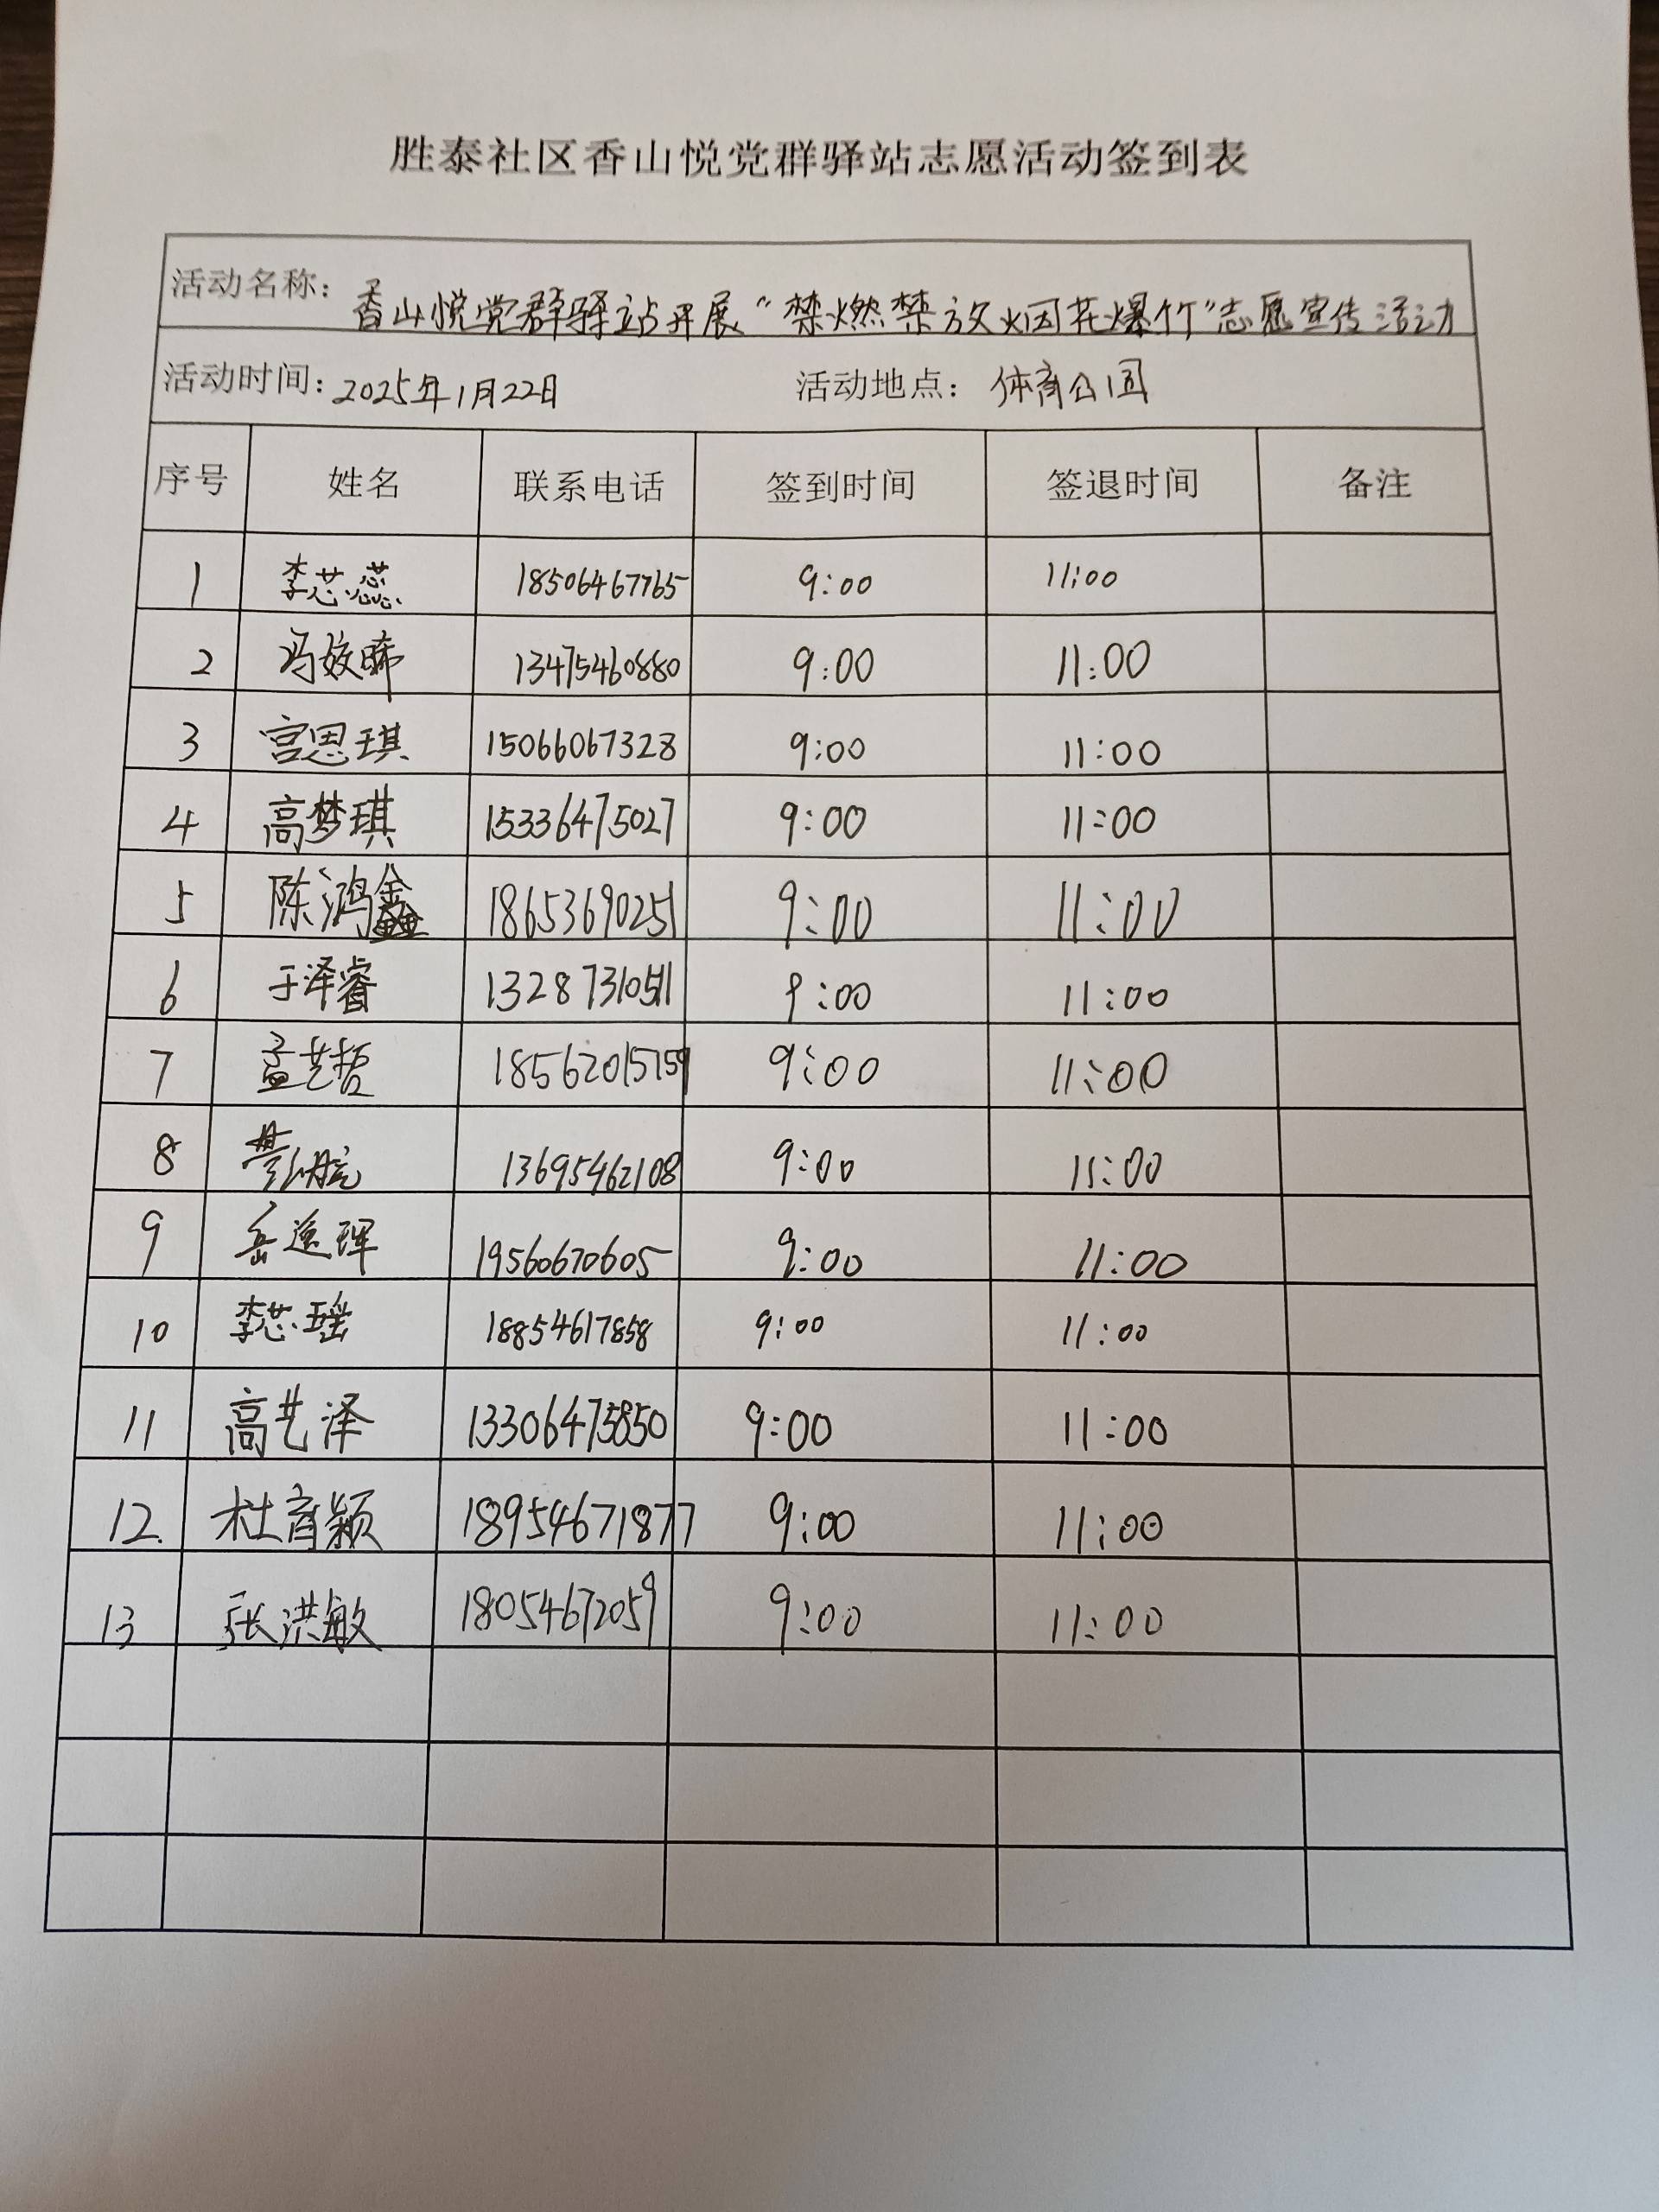 胜泰社区香山悦党群驿站志愿活动签到表
活动名称：香山悦党群驿站开展“禁燃禁放烟花爆竹”志愿宣传活动
活动时间：2025年1月22日 活动地点：体育公园
序号 姓名 联系电话 签到时间 签退时间 备注
1 李芯蕊 18506467765 9:00 11:00
2 冯姣晞 13475460880 9:00 11:00
3 宫思琪 15066067328 9:00 11:00
4 高梦琪 15336475027 9:00 11:00
5 陈鸿鑫 18653690251 9:00 11:00
6 于泽睿 13287310511 9:00 11:00
7 孟艺哲 18562015159 9:00 11:00
8 13695462108 9:00 11:00
9 岳 珲 19560670605 9:00 11:00
10 李芯瑶 18854617858 9:00 11:00
11 高艺泽 13306475850 9:00 11:00
12. 杜育颖 18954671877 9:00 11:00
13 张洪敏 18054672059 9:00 11:00